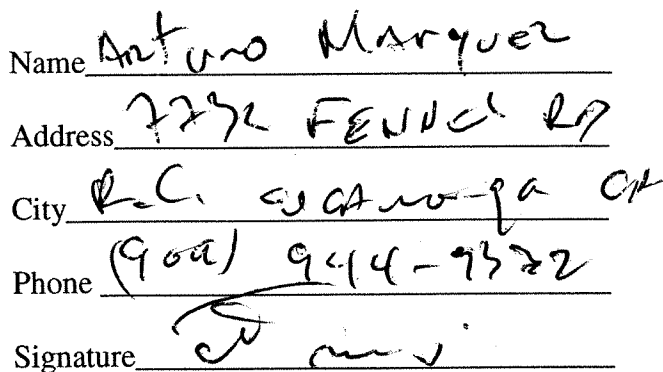 Name Arturo Marquez
Address 7732 FENNel RD
City R.C. CA
Phone (909) 944-9372
Signature